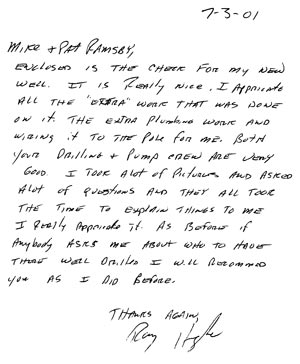 7-3-01
Mike & Pat Ramsby,
Enclosed is the check for my new
well. It is really nice. I appriciate
all the "extra" work that was done
on it. The extra plumbing work and
wiring it to the pole for me. Both
your drilling & pump crew are very
good I took alot of pictures and asked
alot of questions and they all took
the time to explain things to me
I really appriciate it. As before if
anybody asks me about who to have
there well drilled I will recommed
you as I did before.
Thanks again,
Ray